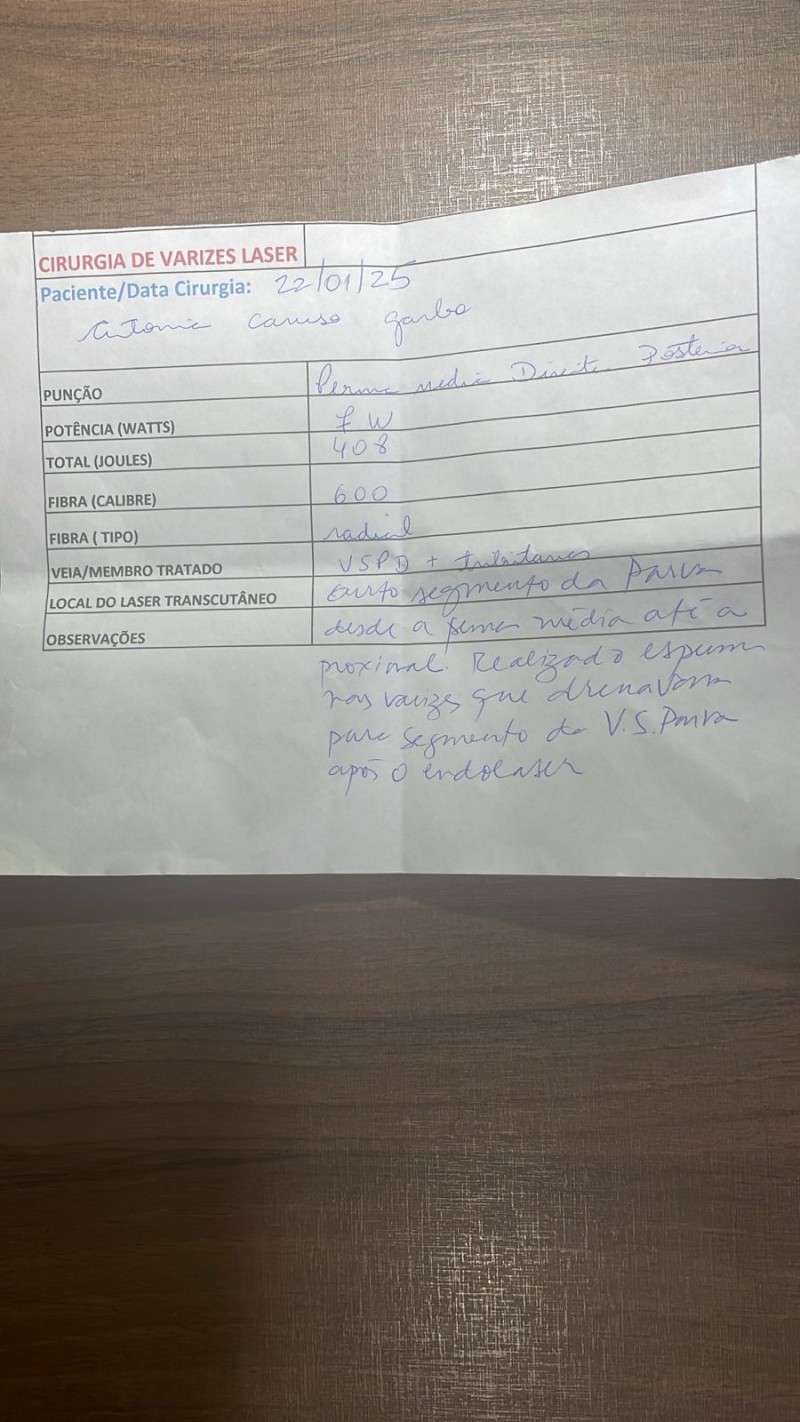 CIRURGIA DE VARIZES LASER
Paciente/Data Cirurgia: 22/01/25
Antonia Caruso Garbo
PUNÇÃO Perna media Direita Posterior
POTÊNCIA (WATTS) 7 W
TOTAL (JOULES) 408
FIBRA (CALIBRE) 600
FIBRA ( TIPO) radial
VEIA/MEMBRO TRATADO VSPD + tributarias
LOCAL DO LASER TRANSCUTÂNEO curto segmento da Parva
OBSERVAÇÕES desde a perna média até a
proximal. Realizado espuma
nas varizes que drenavam
para segmento da V.S. Parva
após o endolaser